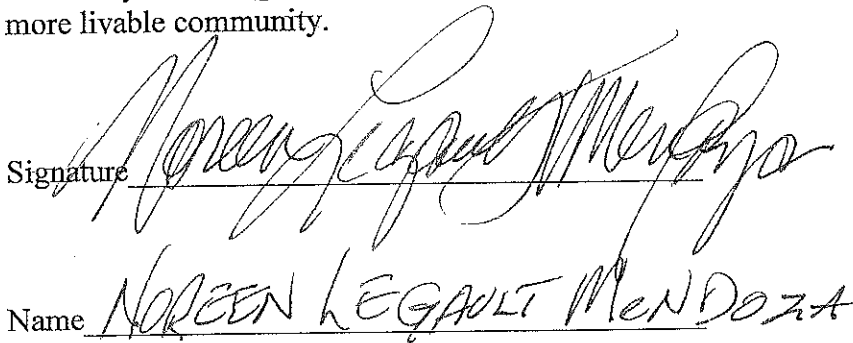 more livable community.
Signature Noreen Legault Mendoza
Name NOREEN LEGAULT MENDOZA